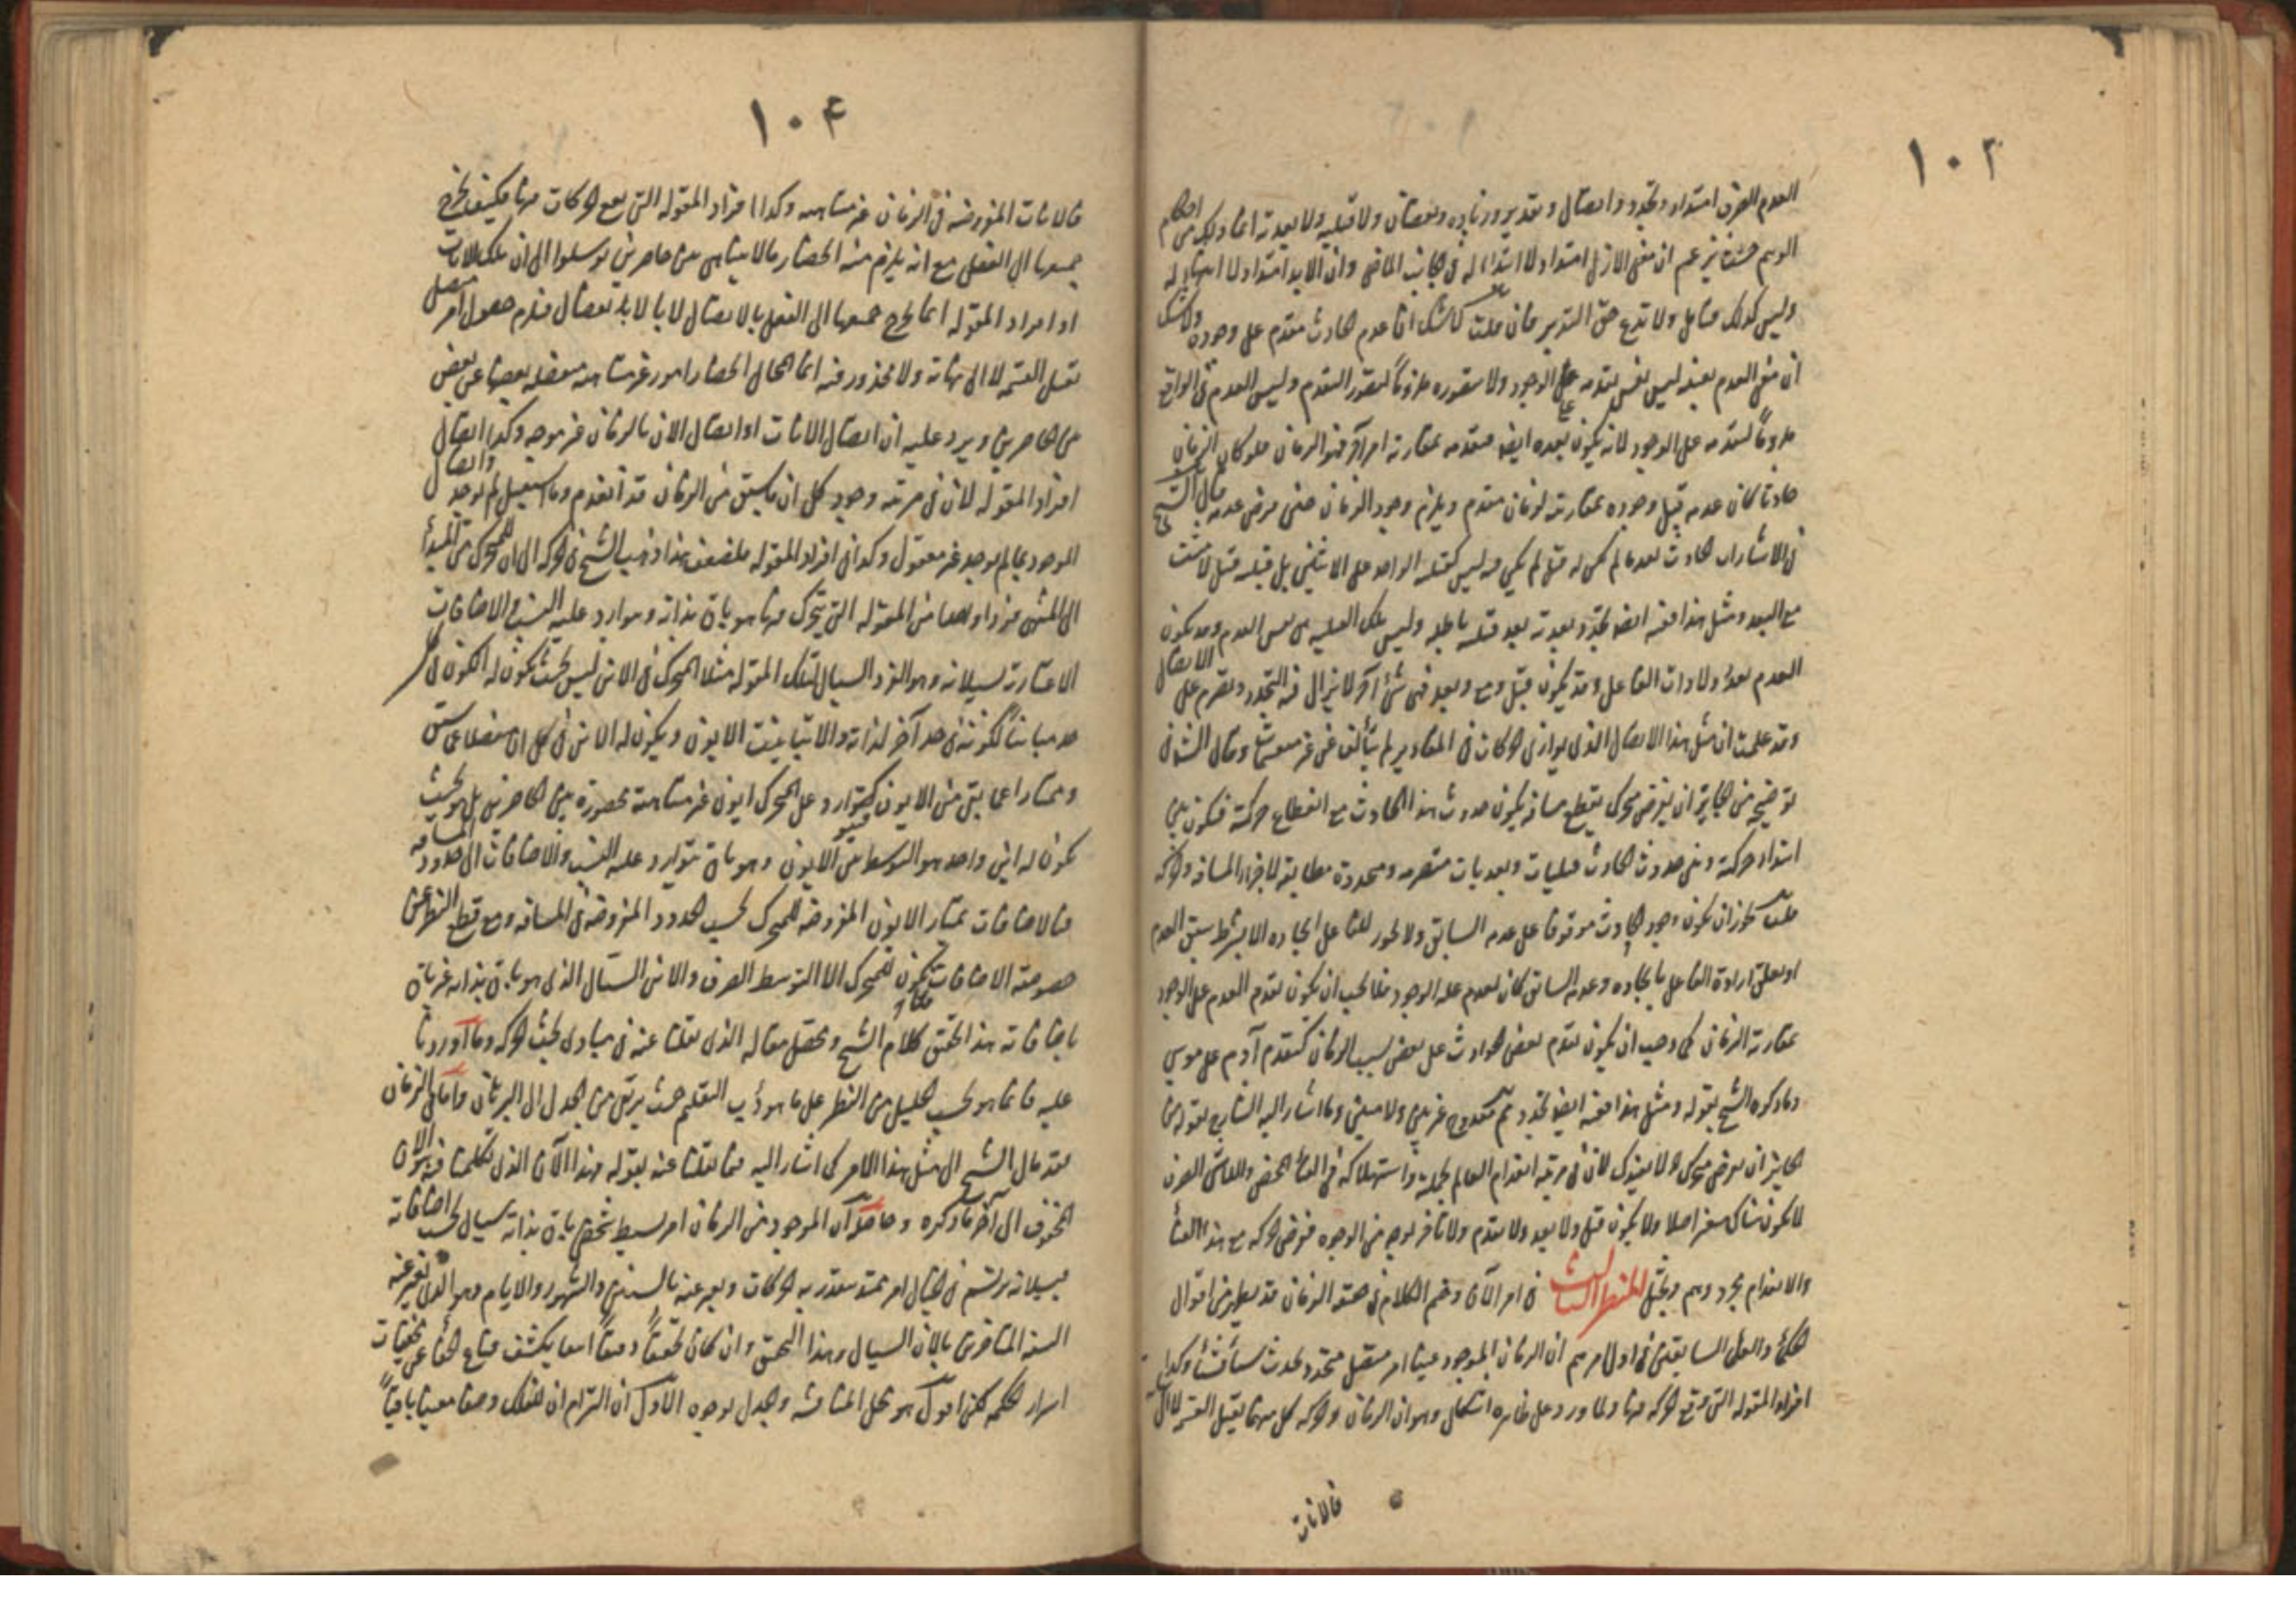 ١٠٣
العدم الصرف امتداد وتجدد واتصال وتقدير وزيادة ونقصان ولا قبلية ولا بعدية انما ذلك من احكام
الوهم حيث يزعم ان معنى الازل امتداد لا ابتداء له في جانب الماضي وان الابد امتداد لا انتهاء له
وليس كذلك ولا تدع حق التدبر فان قلت لا شك ان عدم الحادث متقدم على وجوده ولا شك
ان معنى العدم بعينه ليس نفس تقدمه على الوجود ولا تصوره ملزوماً لتصور التقدم وليس العدم في الواقع
ملزوماً لتقدمه على الوجود لانه يكون بعده ايضا فتقدمه بمقارنة امر آخر فهو الزمان فلو كان الزمان
حادثا كان عدمه قبل وجوده بمقارنة لزمان متقدم ويلزم وجود الزمان حين فرض عدمه قال الشيخ
في الاشارات الحادث بعد ما لم يكن له قبل لم يكن فيه ليس كقبلية الواحد على الاثنين بل قبلية قبل لا يثبت
مع البعد ومثل هذا ففيه ايضا تجدد بعدية بعد قبلية باطلة وليس تلك القبلية هي نفس العدم وقد يكون
العدم بعد ولا ذات الفاعل وقد يكون قبل ومع وبعد فهي شيء آخر لا يزال فيه التجدد وتصرم على الاتصال
وقد علمت ان مثل هذا الاتصال الذي يوازي الحركات في المقادير لم يتألف من غير منقسمات وقال الشارح في
توضيحه من الجائز ان يفرض متحرك يقطع مسافة يكون حدوث هذا الحادث مع انقطاع حركته فيكون بين
ابتداء حركته وبين حدوث الحادث قبليات وبعديات متصرمة ومتجددة مطابقة لاجزاء المسافة والحركة
قلت يجوز ان يكون وجود الحادث موقوفا على عدمه السابق ولا يجوز للفاعل ايجاده الا بشرط سبق العدم
او تعلق ارادة الفاعل بايجاده وعدمه السابق كان لعدم علة الوجود فلا يجب ان يكون تقدم العدم على الوجود
بمقارنة الزمان كما وجب ان يكون تقدم بعض الحوادث على بعض بسبب الزمان كتقدم آدم على موسى
وما ذكره الشيخ بقوله ومثل هذا ففيه ايضا تجدد ثم ممنوع غير بين ولا مبين وما اشار اليه الشارح بقوله من
الجائز ان يفرض متحرك لا يفيدك لان في مرتبة انعدام العالم بجملته واستهلاكه في الفناء المحض واللاشيء الصرف
لا يكون هناك سفر اصلا ولا يكون قبل ولا بعد ولا تقدم ولا تأخر بوجه من الوجوه ففرض الحركة مع هذا الفناء
والانعدام مجرد وهم وتخيل المنظر الثالث في امر الآن وختم الكلام في حقيقة الزمان قد يظهر من اقوال
الحكماء والعقلاء السابقين في اول امرهم ان الزمان الموجود عينا امر متصل متجدد يحدث شيئا فشيئا وكذا
افراد المقولة التي يقع الحركة فيها ولما ورد على ظاهره اشكال وهو ان الزمان والحركة كل منهما يقبل القسمة لا الى
فالانات
١٠٤
فالانات المفروضة في الزمان غير متناهية وكذا افراد المقولة التي يقع الحركات فيها فكيف يخرج
جميعها الى الفعل مع انه يلزم منه انحصار ما لا يتناهى بين حاصرين توسلوا الى ان تلك الانات
او افراد المقولة انما يخرج جميعها الى الفعل بالاتصال لا بالانفصال فيلزم حصول امر متصل
تقبل القسمة لا الى نهاية ولا محذور فيه انما المحال انحصار امور غير متناهية منفصلة بعضها عن بعض
بين الحاصرين ويرد عليه ان اتصال الانات او اتصال الان بالزمان غير موجه وكذا اتصال
افراد المقولة لان في مرتبة وجود كل ان ما سبق من الزمان قد انعدم وما سيقبل لم يوجد واتصال
الموجود بما لم يوجد غير معقول وكذا في افراد المقولة فلضعف هذا ذهب الشيخ في الحركة الى ان للمتحرك من المبدأ
الى المنتهى فردا واحدا من المقولة التي يتحرك فيها هو باق بذاته وتوارد عليه النسب والاضافات
الاعتبارية لسيلانه وهو الفرد السيال لتلك المقولة مثلا المتحرك في الاين ليس بحيث يكون له الكون في كل
حد مباينا لكونه في حد آخر لذاته والا لتباينت الايون ويكون له الاين في كل ان منفصلا عما سبق
وممتازا عما بقى من الايون فيتوارد على المتحرك ايون غير متناهية محصورة بين الحاصرين بل هو بحيث
يكون له اين واحد هو التوسط بين الايون وهو باق يتوارد عليه النسب والاضافات الى حدود المسافة
فبالاضافات يمتاز الايون المفروضة للمتحرك بحسب الحدود المفروضة في المسافة ومع قطع النظر عن
خصوصية الاضافات لا يكون للمتحرك الا التوسط الصرف والاين السيال الذي هو باق بذاته غير باق
باضافاته هذا تحقق كلام الشيخ ومحصل مقاله الذي نقلنا عنه في مبادي بحث الحركة وما اوردنا
عليه فانما هو بحسب الجليل من النظر على ما هو دأب التعليم حيث يرتقي من الجدل الى البرهان واما في الزمان
فقد مال الشيخ الى مثل هذا الامر كما اشار اليه فيما نقلنا عنه بقوله فهذا الآن الذي تكلمنا فيه هو الان
المحفوف الى آخر ما ذكره وحاصله ان الموجود من الزمان امر بسيط شخصي باق بذاته سيال بحسب اضافاته
فبسيلانه يرتسم في الخيال امر ممتد يتقدر به الحركات ويعبر عنه بالسنين والشهور والايام وهو الذي يعبر عنه
السنة المتأخرين بالان السيال وهذا التحقيق وان كان تحقيقاً دقيقاً انيقا يكشف قناع الخفاء عن مخفيات
اسرار الحكمة لكني اقول هو محل المناقشة والجدل بوجوه الاول ان التزام ان للفلك وصفا معينا باقياً